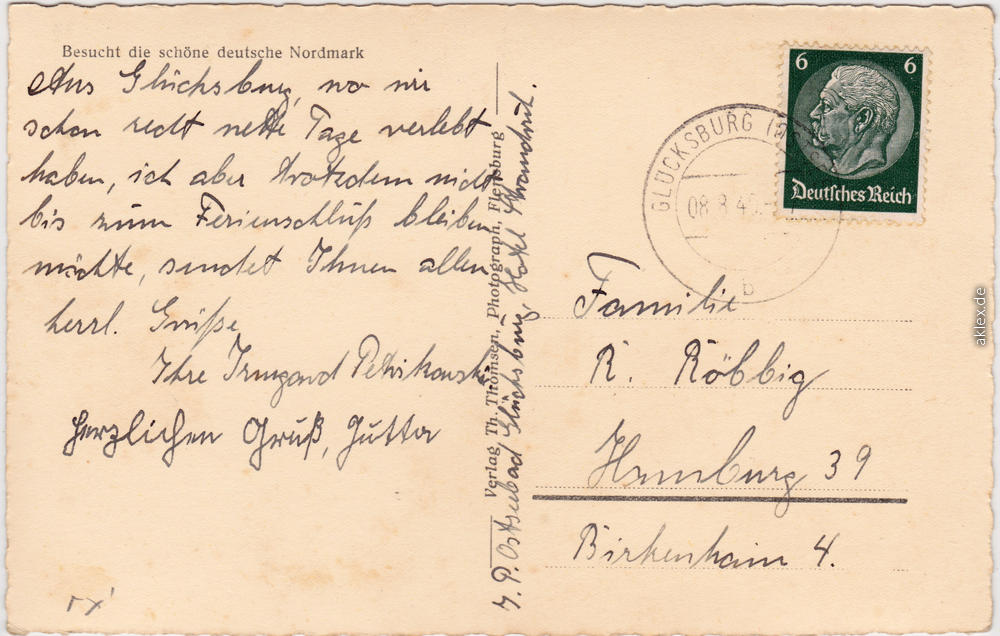 Besucht die schöne deutsche Nordmark
Aus Glücksburg, wo wir
schon recht nette Tage verlebt
haben, ich aber trotzdem nicht
bis zum Ferienschluß bleiben
möchte, sendet Ihnen allen
herzl. Grüße
Ihre Irmgard Petrikowski
Herzlichen Gruß, Jutta
Verlag Th. Thomsen, Photograph, Flensburg
z. P. Ostseebad Glücksburg, Hotel Strandhof.
6 6
Deutsches Reich
GLÜCKSBURG
08.8.40
b
Familie
R. Röbbig
Hamburg 39
Birkenhain 4.
aklex.de